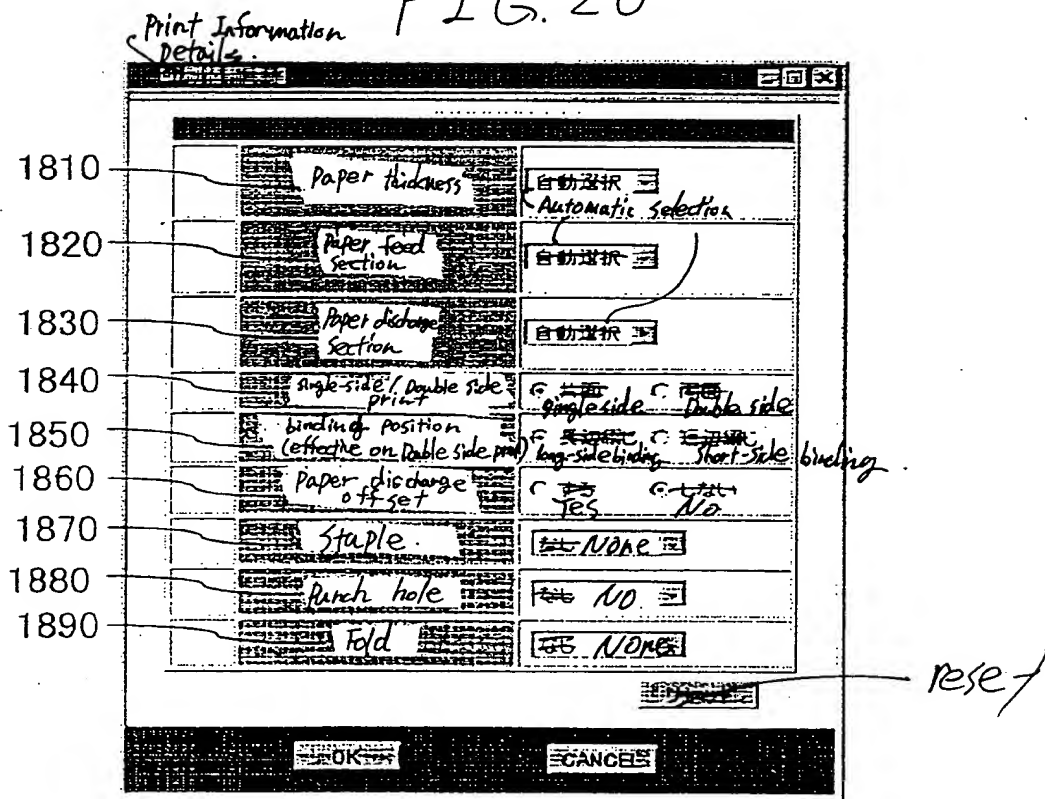 FIG. 20
Print Information
Details.
1810
Paper thickness
自動選択
Automatic selection
1820
Paper feed
section
自動選択
1830
Paper discharge
section
自動選択
1840
single-side / Double side
print
片面 両面
single side Double side
1850
binding position
(effective on Double side print)
長辺綴じ 短辺綴じ
long-side binding Short-side binding.
1860
Paper discharge
offset
する しない
Yes No
1870
Staple.
なし None
1880
Punch hole
なし NO
1890
Fold
なし None
reset
OK
CANCEL